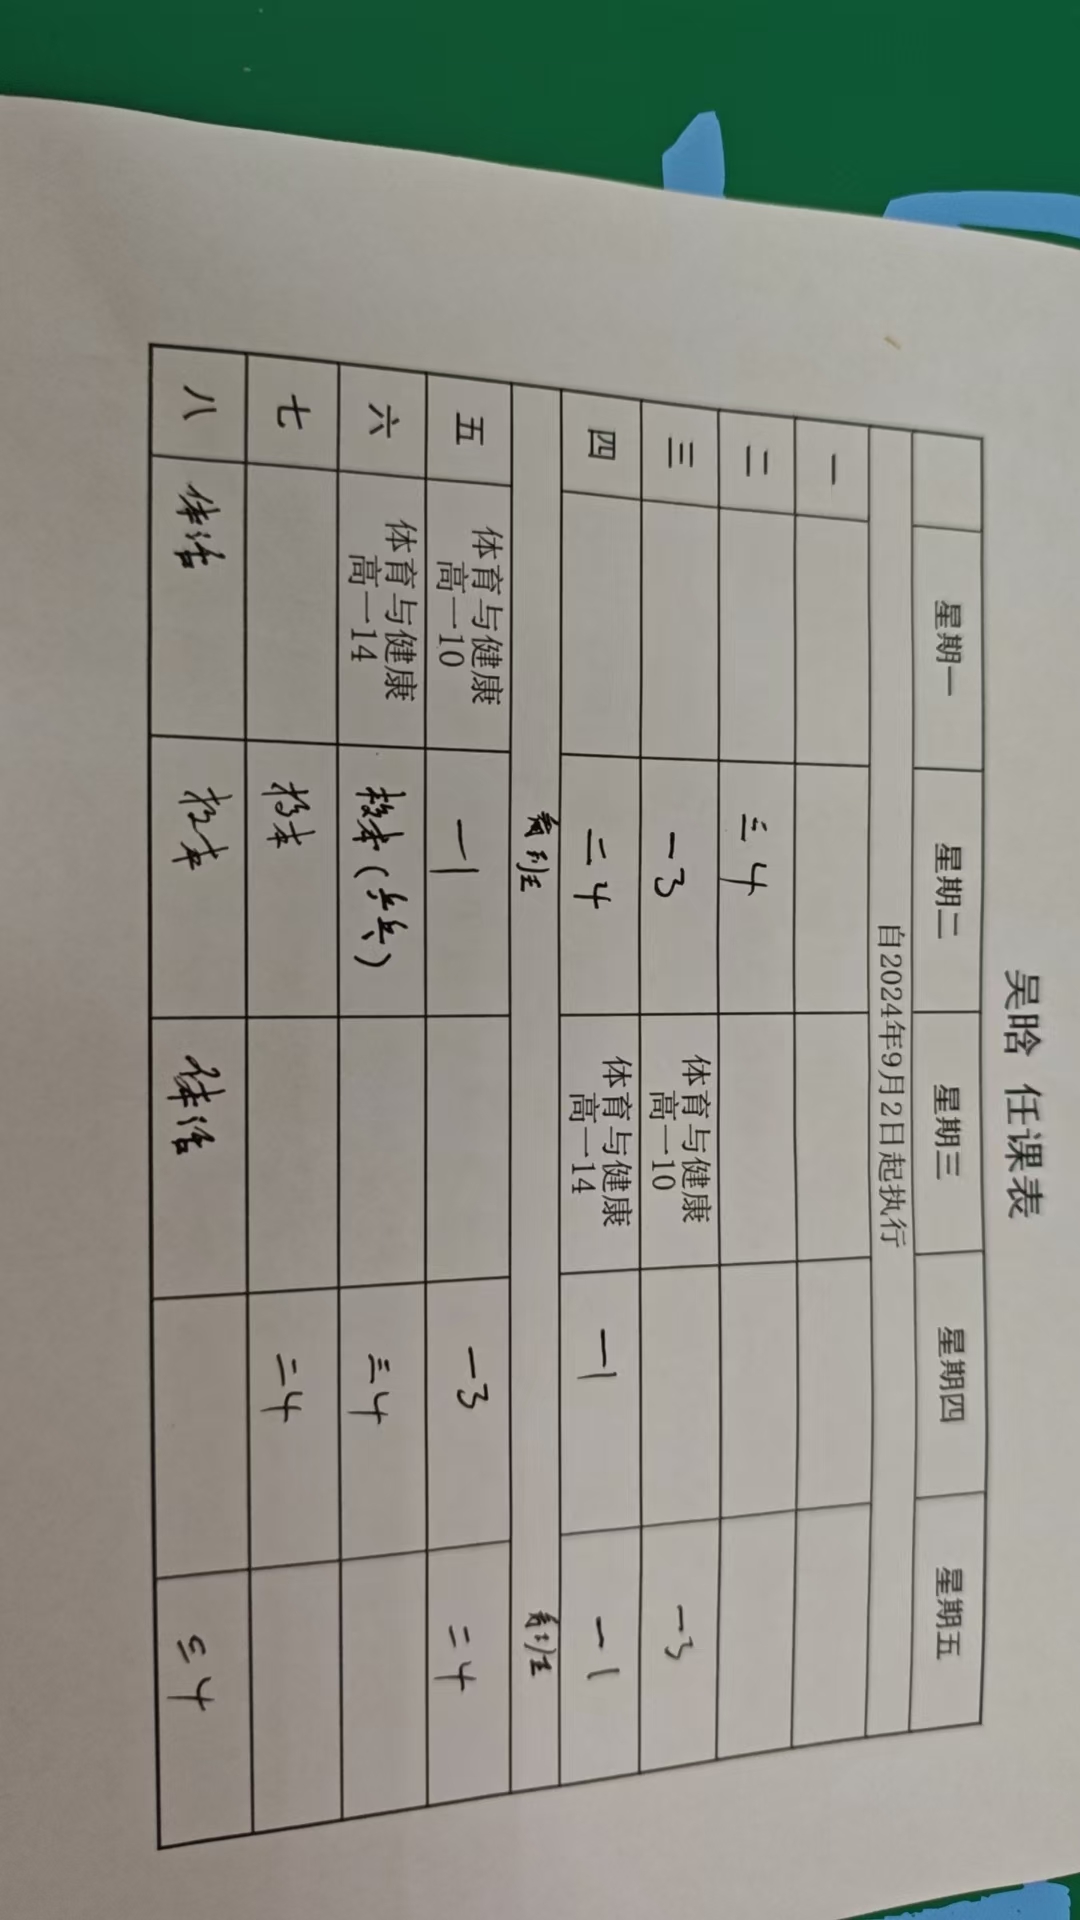 吴晗 任课表
星期一 星期二 星期三 星期四 星期五
自2024年9月2日起执行
一
二 三4
三 一3 体育与健康 一3
高一10
四 二4 体育与健康 一1 一1
高一14
看班 看班
五 体育与健康 一1 一3 二4
高一10
六 体育与健康 校本(乒乓) 三4
高一14
七 校本 二4
八 体活 校本 体活 三4